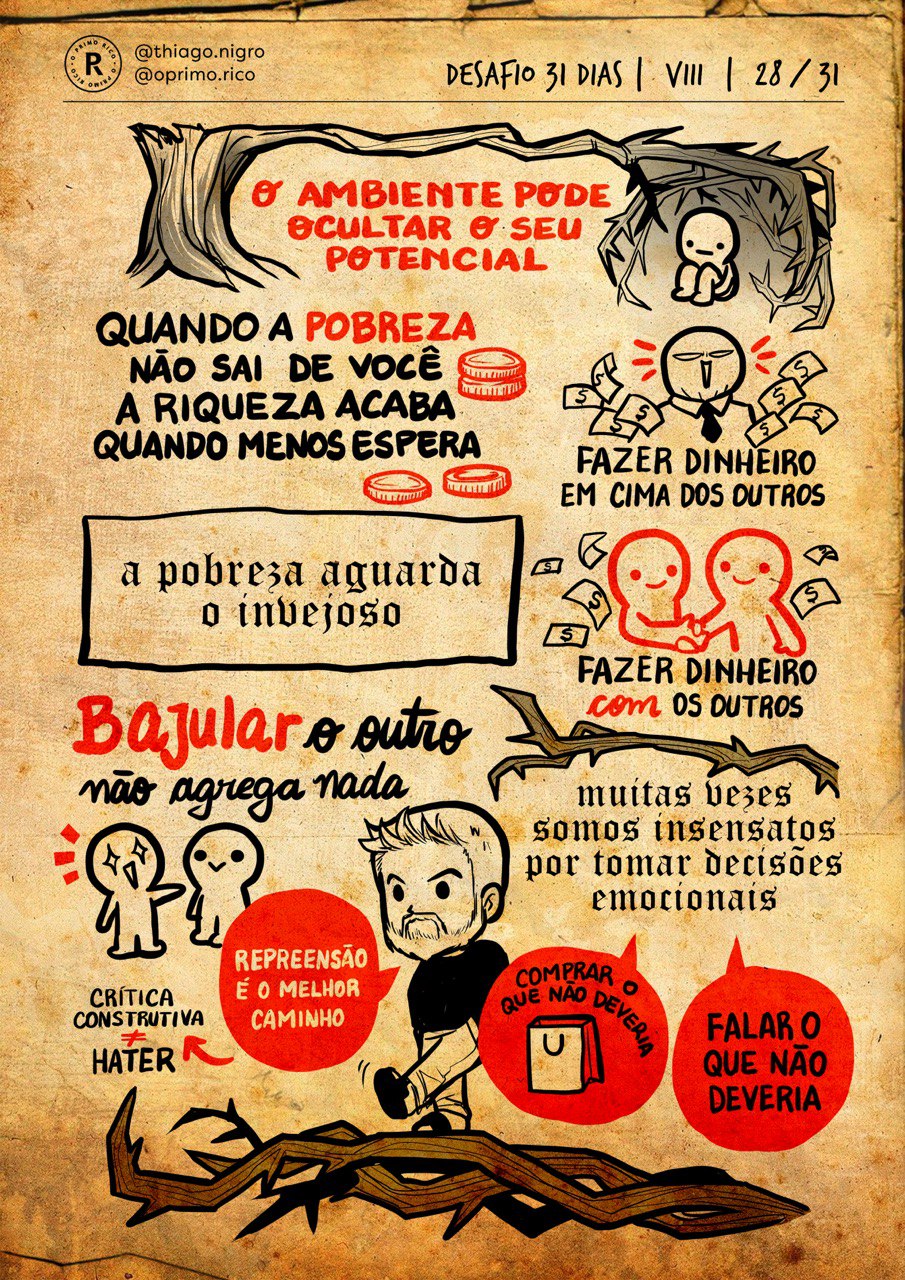 O PRIMO RICO · O PRIMO RICO ·
R
@thiago.nigro
@oprimo.rico
DESAFIO 31 DIAS | VIII | 28 / 31
O AMBIENTE PODE
OCULTAR O SEU
POTENCIAL
QUANDO A POBREZA
NÃO SAI DE VOCÊ
A RIQUEZA ACABA
QUANDO MENOS ESPERA
$ $ $ $ $ $
FAZER DINHEIRO
EM CIMA DOS OUTROS
a pobreza aguarda
o invejoso
$ $ $ $
FAZER DINHEIRO
com OS OUTROS
Bajular o outro
não agrega nada
muitas vezes
somos insensatos
por tomar decisões
emocionais
REPREENSÃO
É O MELHOR
CAMINHO
CRÍTICA
CONSTRUTIVA
≠
HATER
COMPRAR O
QUE NÃO DEVERIA
FALAR O
QUE NÃO
DEVERIA